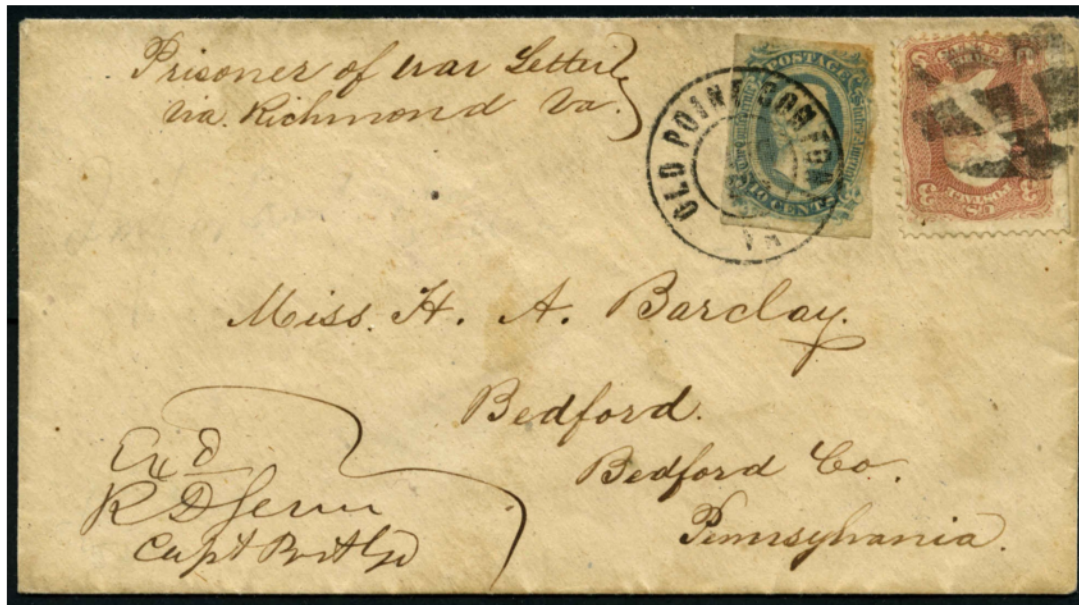 Prisoner of war Letter
via. Richmond Va.
OLD POINT COMFORT
VA
POSTAGE
10 CENTS
3 U.S. 3
POSTAGE
Miss H. A. Barclay.
Bedford.
Bedford Co.
Pennsylvania.
Exd
Capt